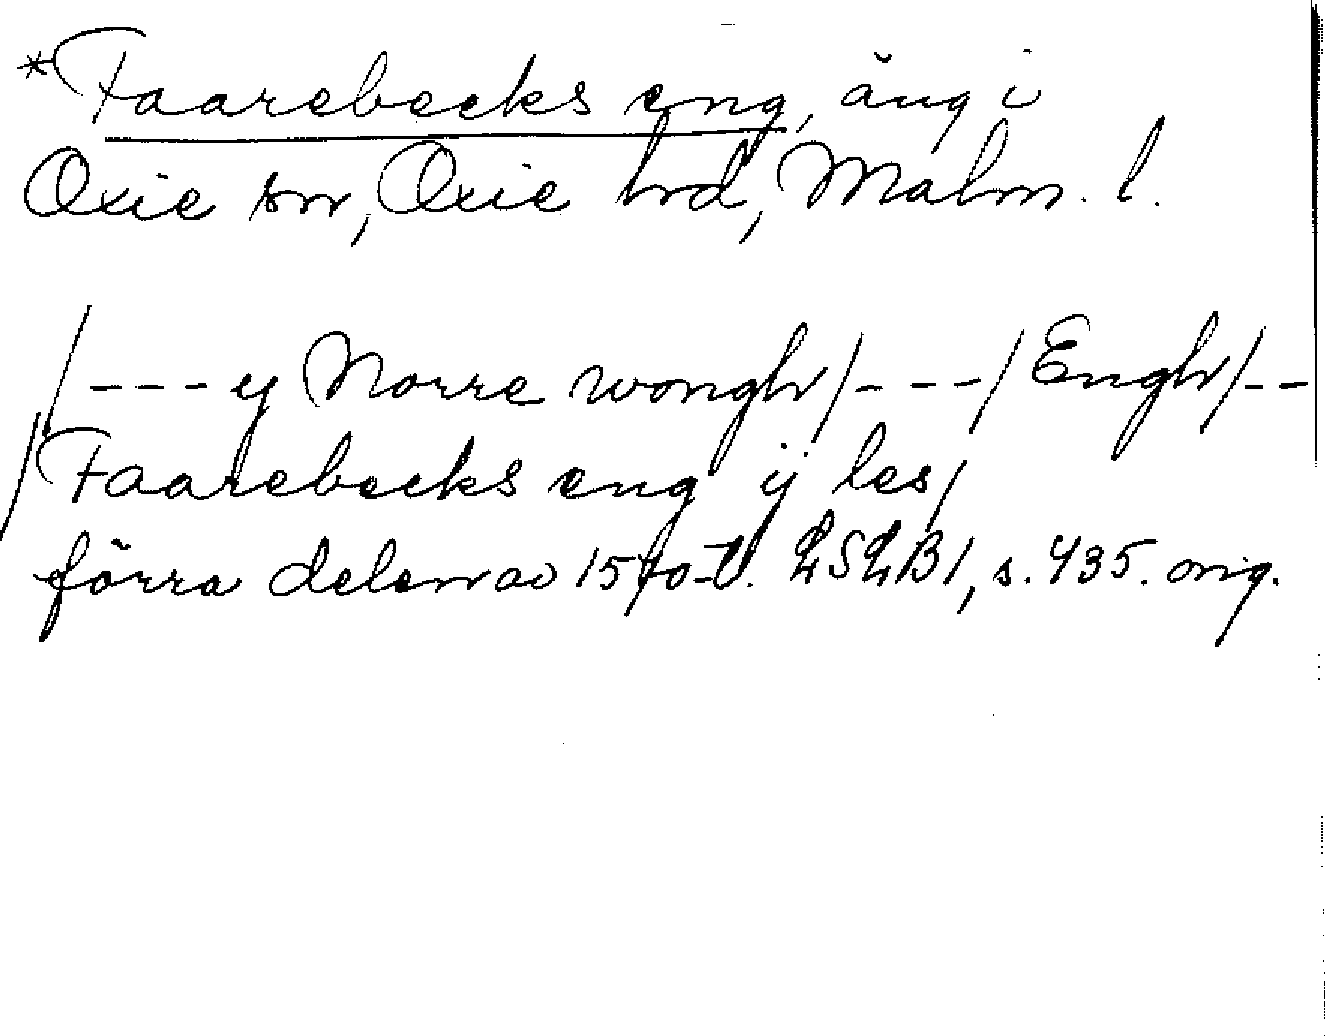 *Faarebecks eng, äng i
Oxie sn, Oxie hd, Malm. l.
/--- y Norre wongh/---/Engh/--
/Faarebecks eng ij les/
förra delen av 1570-t. LSLB1, s. 435. orig.